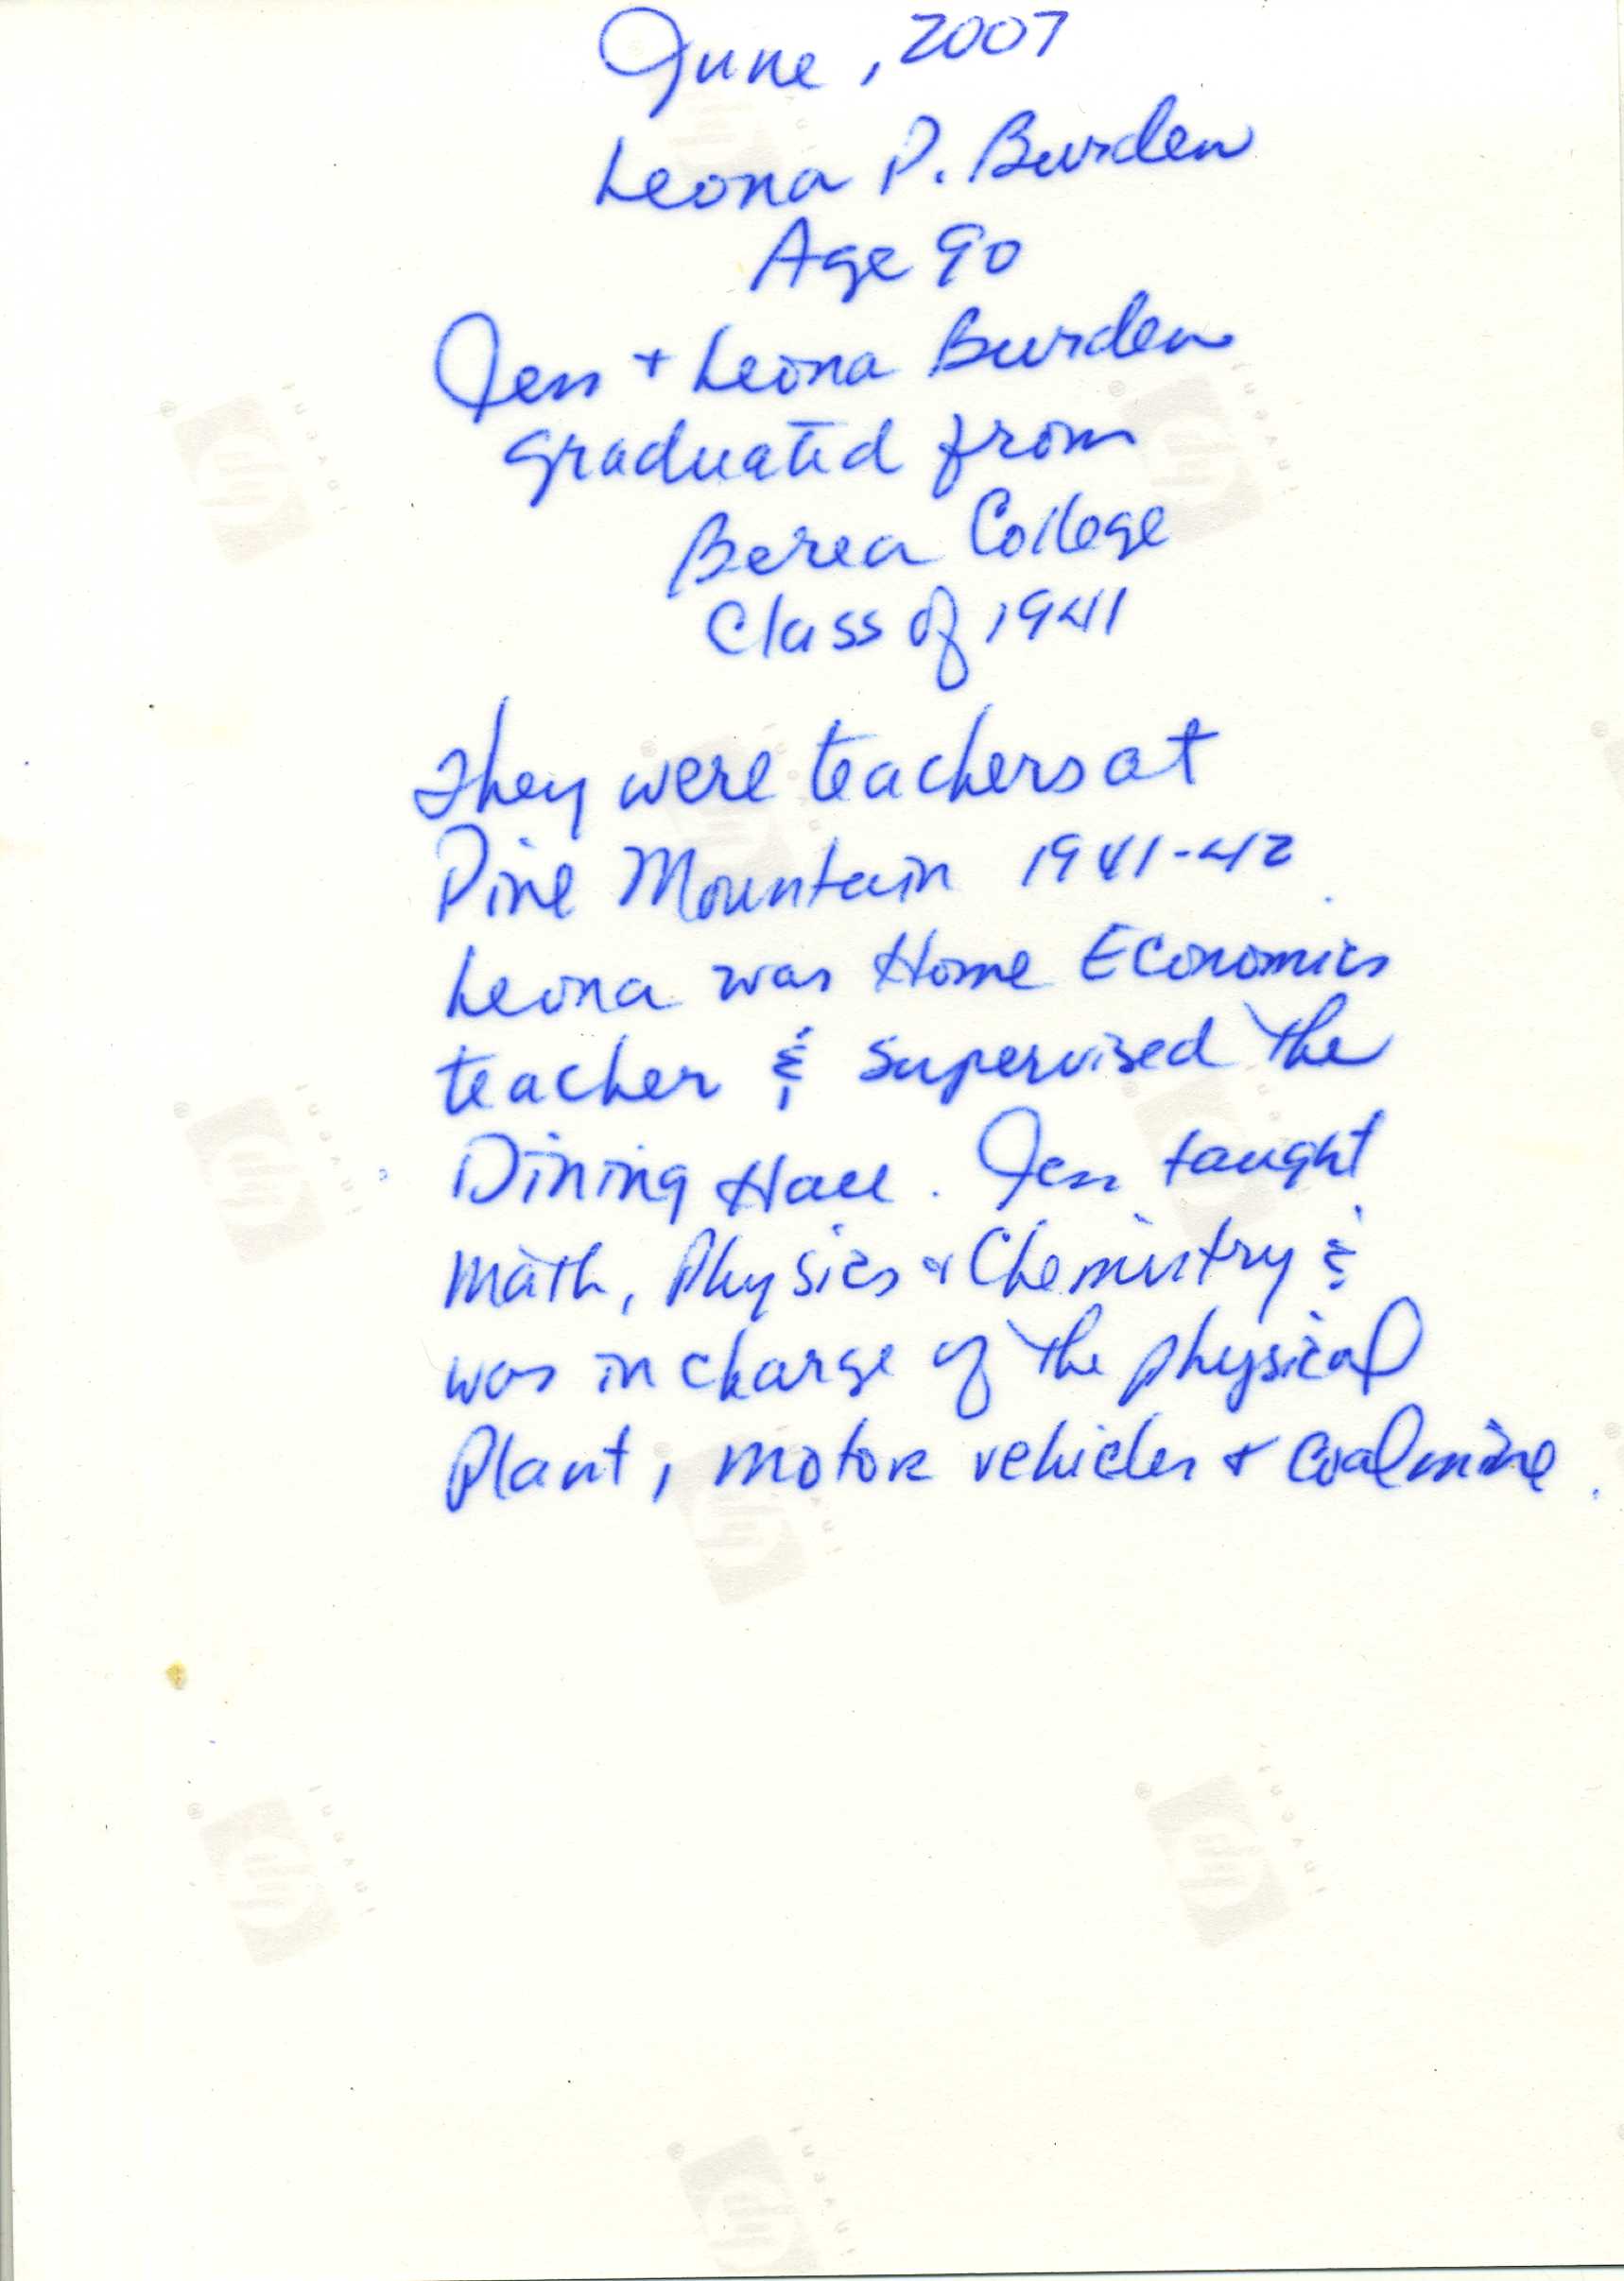 June, 2007
Leona P. Burden
Age 90
Jess + Leona Burden
graduated from
Berea College
Class of 1941
They were teachers at
Pine Mountain 1941-42
Leona was Home Economics
teacher & supervised the
Dining Hall. Jess taught
Math, Physics & Chemistry &
was in charge of the physical
Plant, motor vehicles + coalmine.
hp
invent